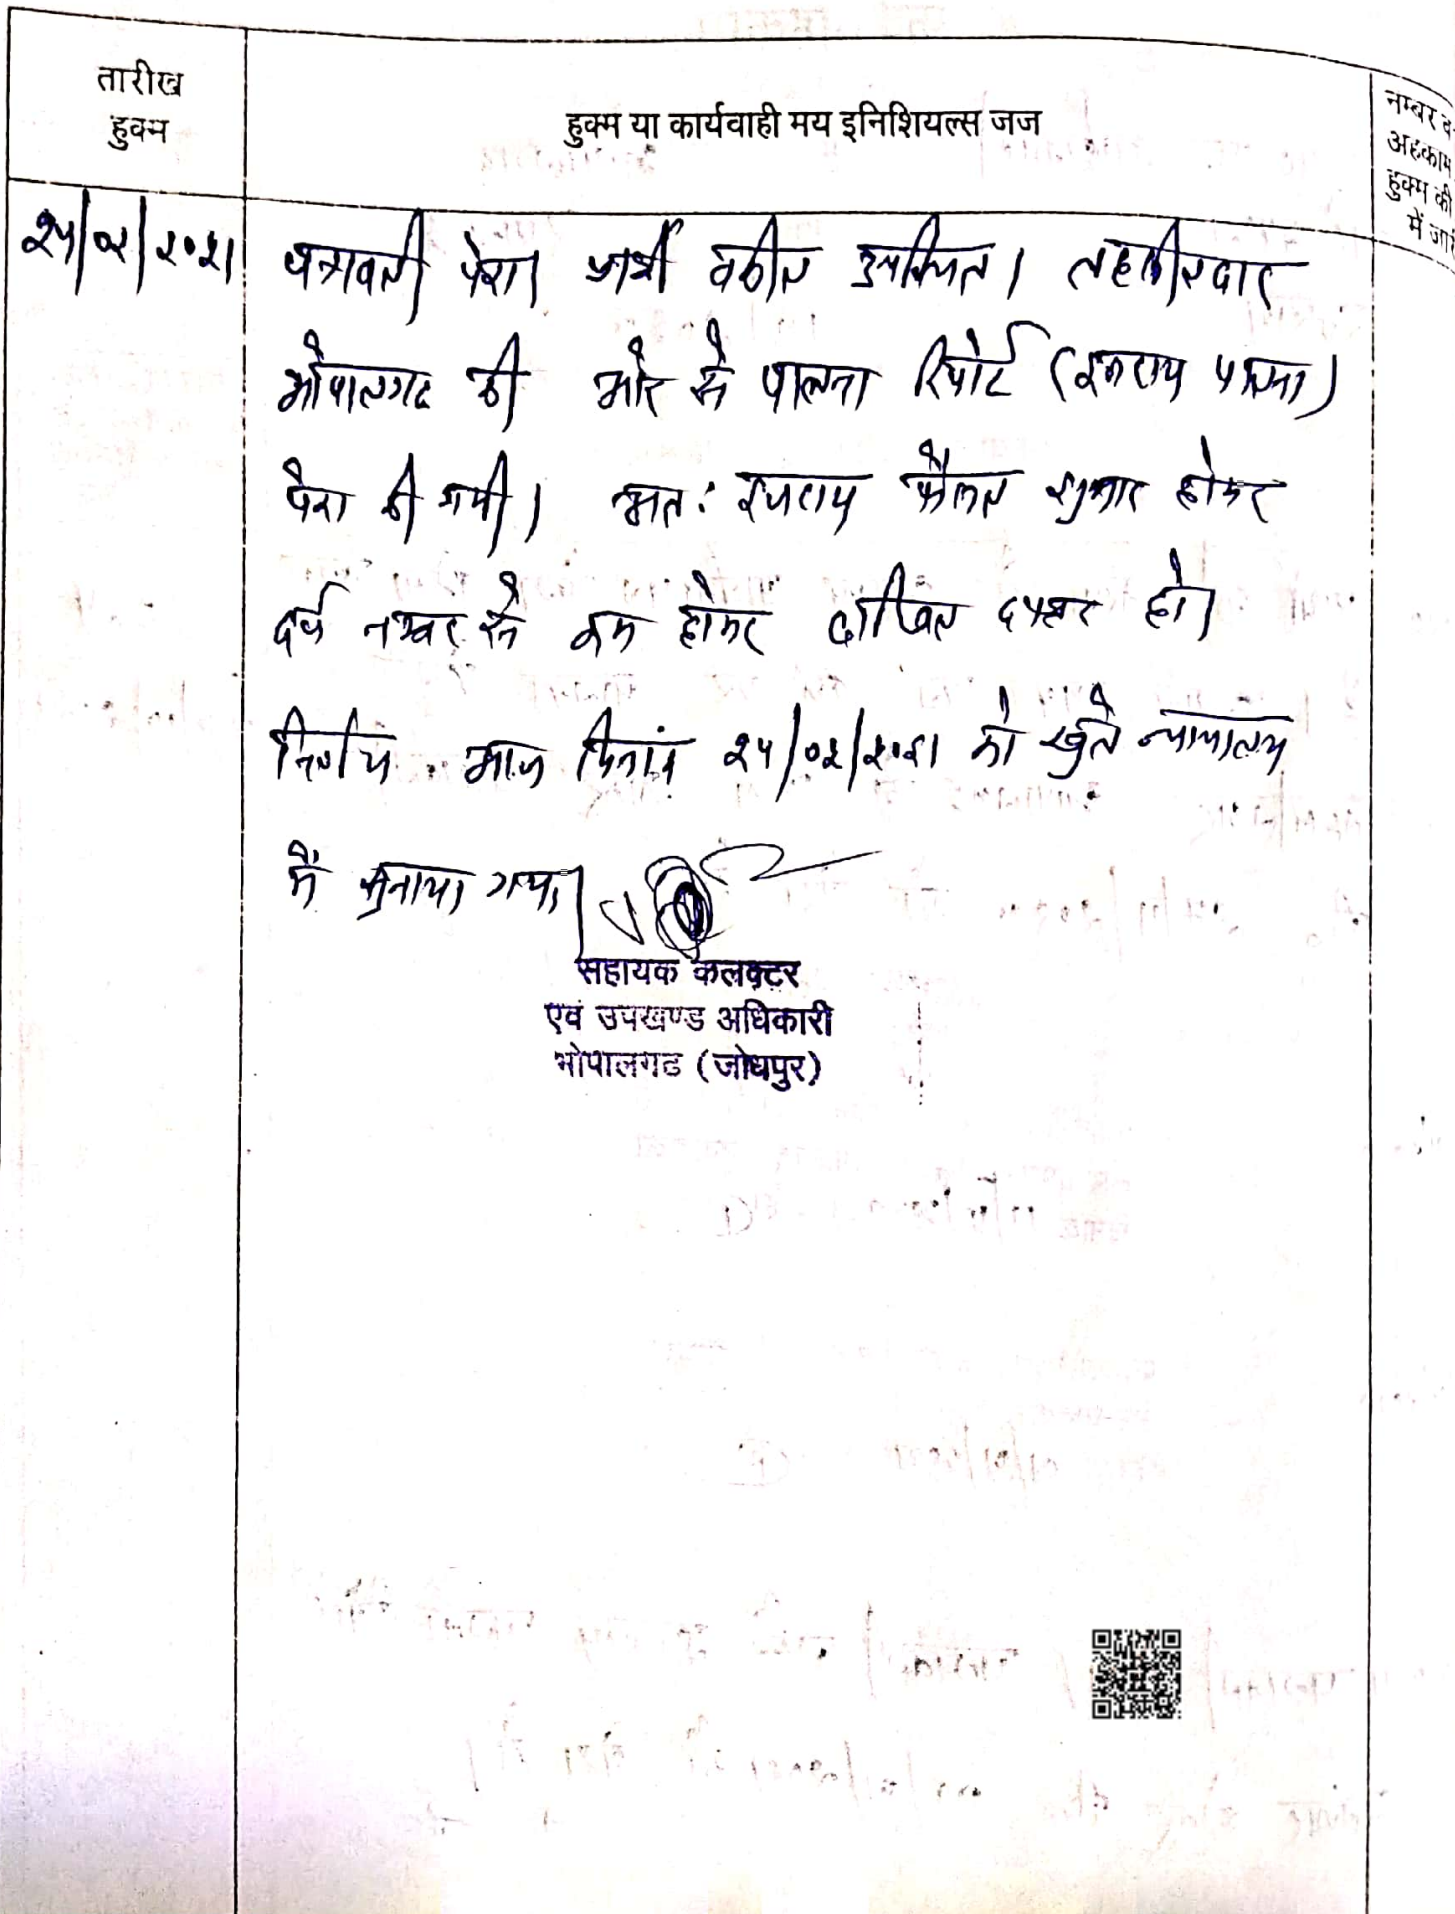 तारीख
हुक्म
हुक्म या कार्यवाही मय इनिशियल्स जज
नम्बर व
अहकाम
हुक्म की
में जारी
२५/०२/२०२१
पत्रावली पेश। प्रार्थी वकील उपस्थित। तहसीलदार
भोपालगढ की ओर से पालना रिपोर्ट (इजराय पालना)
पेश की गयी। अतः इजराय फैसल शुमार होकर
दर्ज नम्बर से कम होकर दाखिल दफ्तर हो।
निर्णय आज दिनांक २५/०२/२०२१ को खुले न्यायालय
में सुनाया गया।
सहायक कलक्टर
एवं उपखण्ड अधिकारी
भोपालगढ (जोधपुर)